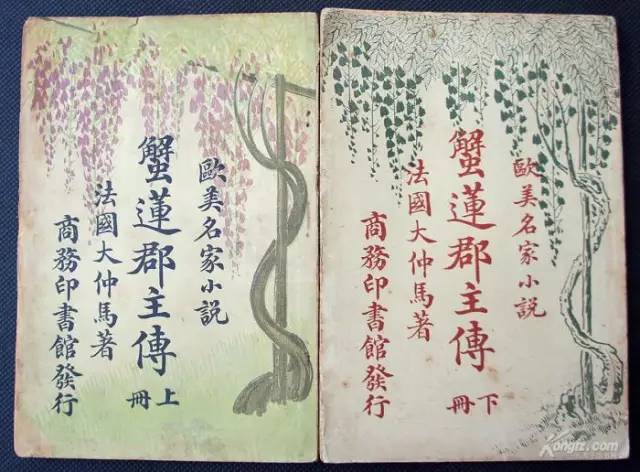 歐美名家小説
蟹蓮郡主傳
上冊
法國大仲馬著
商務印書館發行
歐美名家小説
蟹蓮郡主傳
下冊
法國大仲馬著
商務印書館發行
Kongfz.com